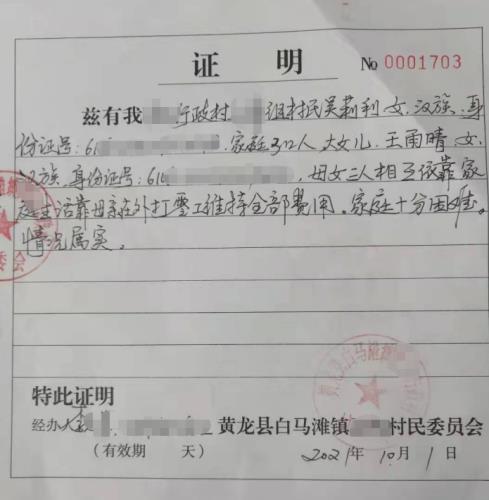 证 明 No 0001703
兹有我 行政村 组村民吴莉利 女、汉族、身
份证号:61 家庭3口人,大女儿,王雨晴 女
汉族、身份证号:61 母女三人相互依靠家
庭生活靠母亲在外打零工维持全部费用。家庭十分困难。
情况属实。
特此证明
经办人 黄龙县白马滩镇 村民委员会
(有效期 天) 2021年10月1日
黄龙县白马滩